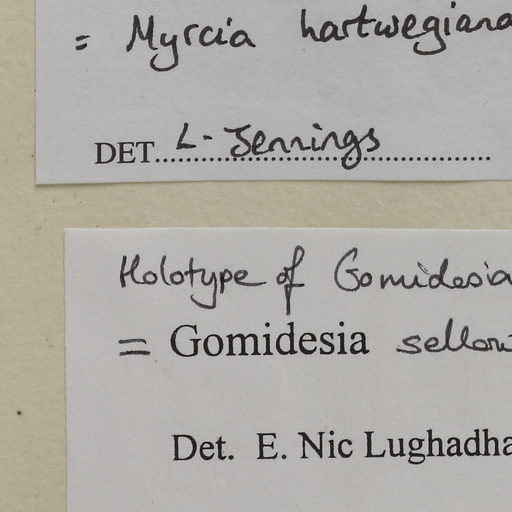 = Myrcia hartwegiana
DET. L. Jennings
Holotype of Gomidesia
= Gomidesia sellow
Det. E. Nic Lughadha